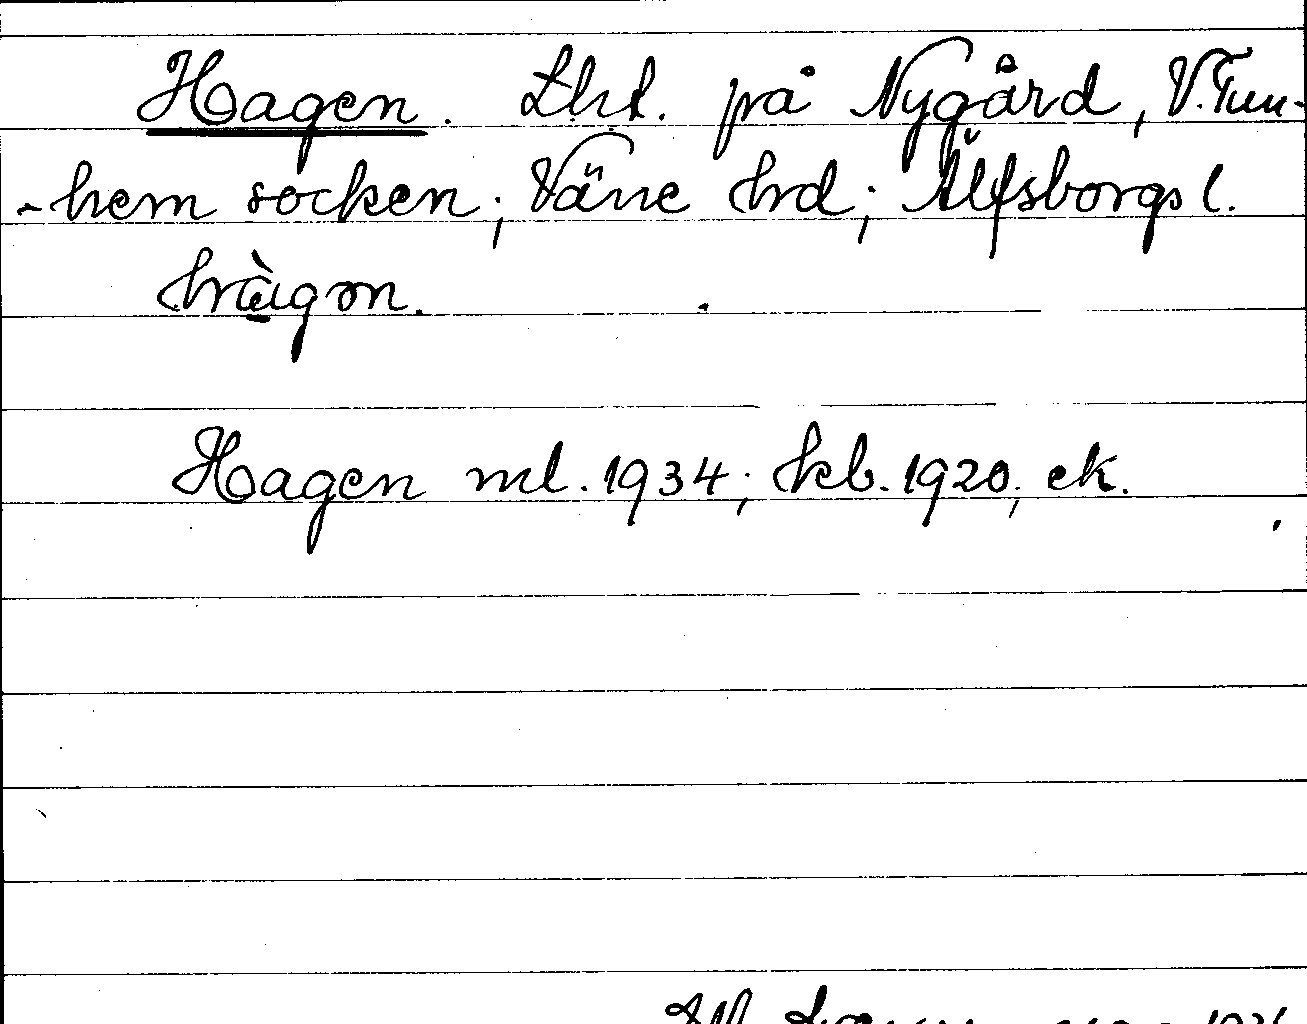 Hagen. Lht. på Nygård, V. Tun-
-hem socken; Väne hrd; Älfsborgs l.
hàgən.
Hagen ml. 1934; kb. 1920; ek.